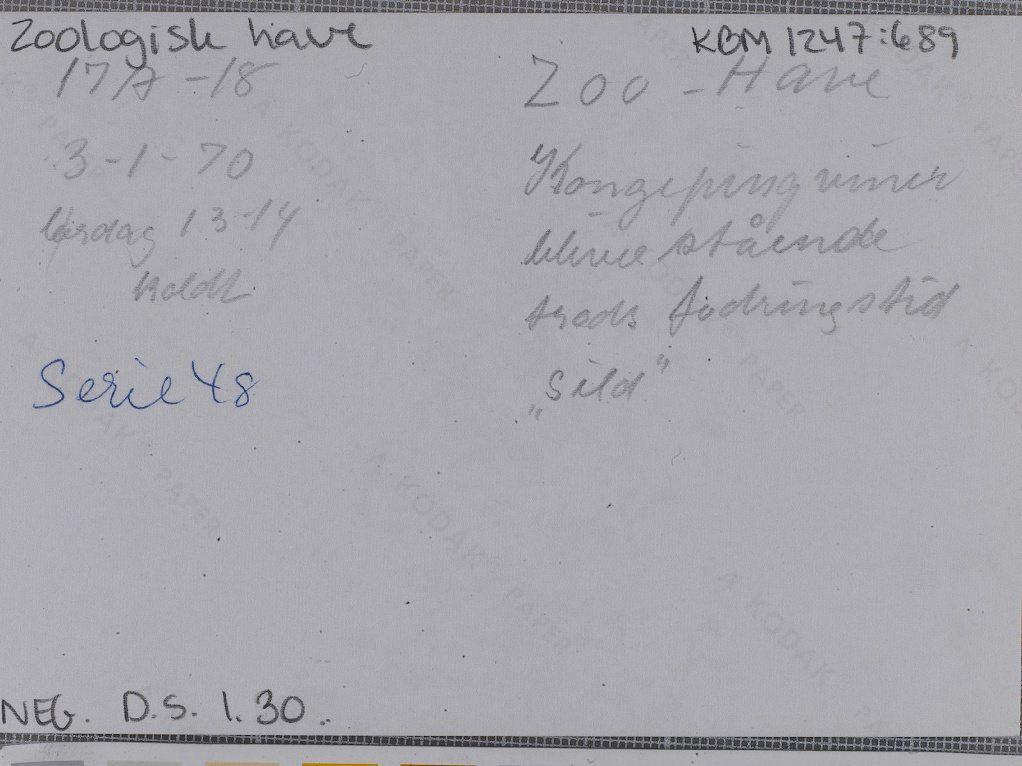 Zoologisk have
KBM 1247:689
17/A -18
3-1-70
lørdag 13-14
koldt
Serie 48
Zoo-Have
Kongepingviner
blive stående
trods fodringstid
„Sild”
A KODAK PAPER
NEG. D.S. 1.30.